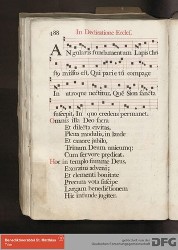 488 In Dedicatione Eccles.
Angularis fundamentum Lapis Chri
stus missus est, Qui parietum compage
In utroque nectitur, Quem Sion sancta
suscepit, In quo credens permanet.
Omnis illa Deo sacra
Et dilecta civitas,
Plena modulis, in laude
Et canore jubilo,
Trinum Deum, unicumq;
Cum fervore prædicat.
Hoc in templo summe Deus,
Exoratus adveni;
Et clementi bonitate
Precum vota suscipe
Largam benedictionem
Hic infunde jugiter.
Benediktinerabtei St. Matthias
Trier
DFG